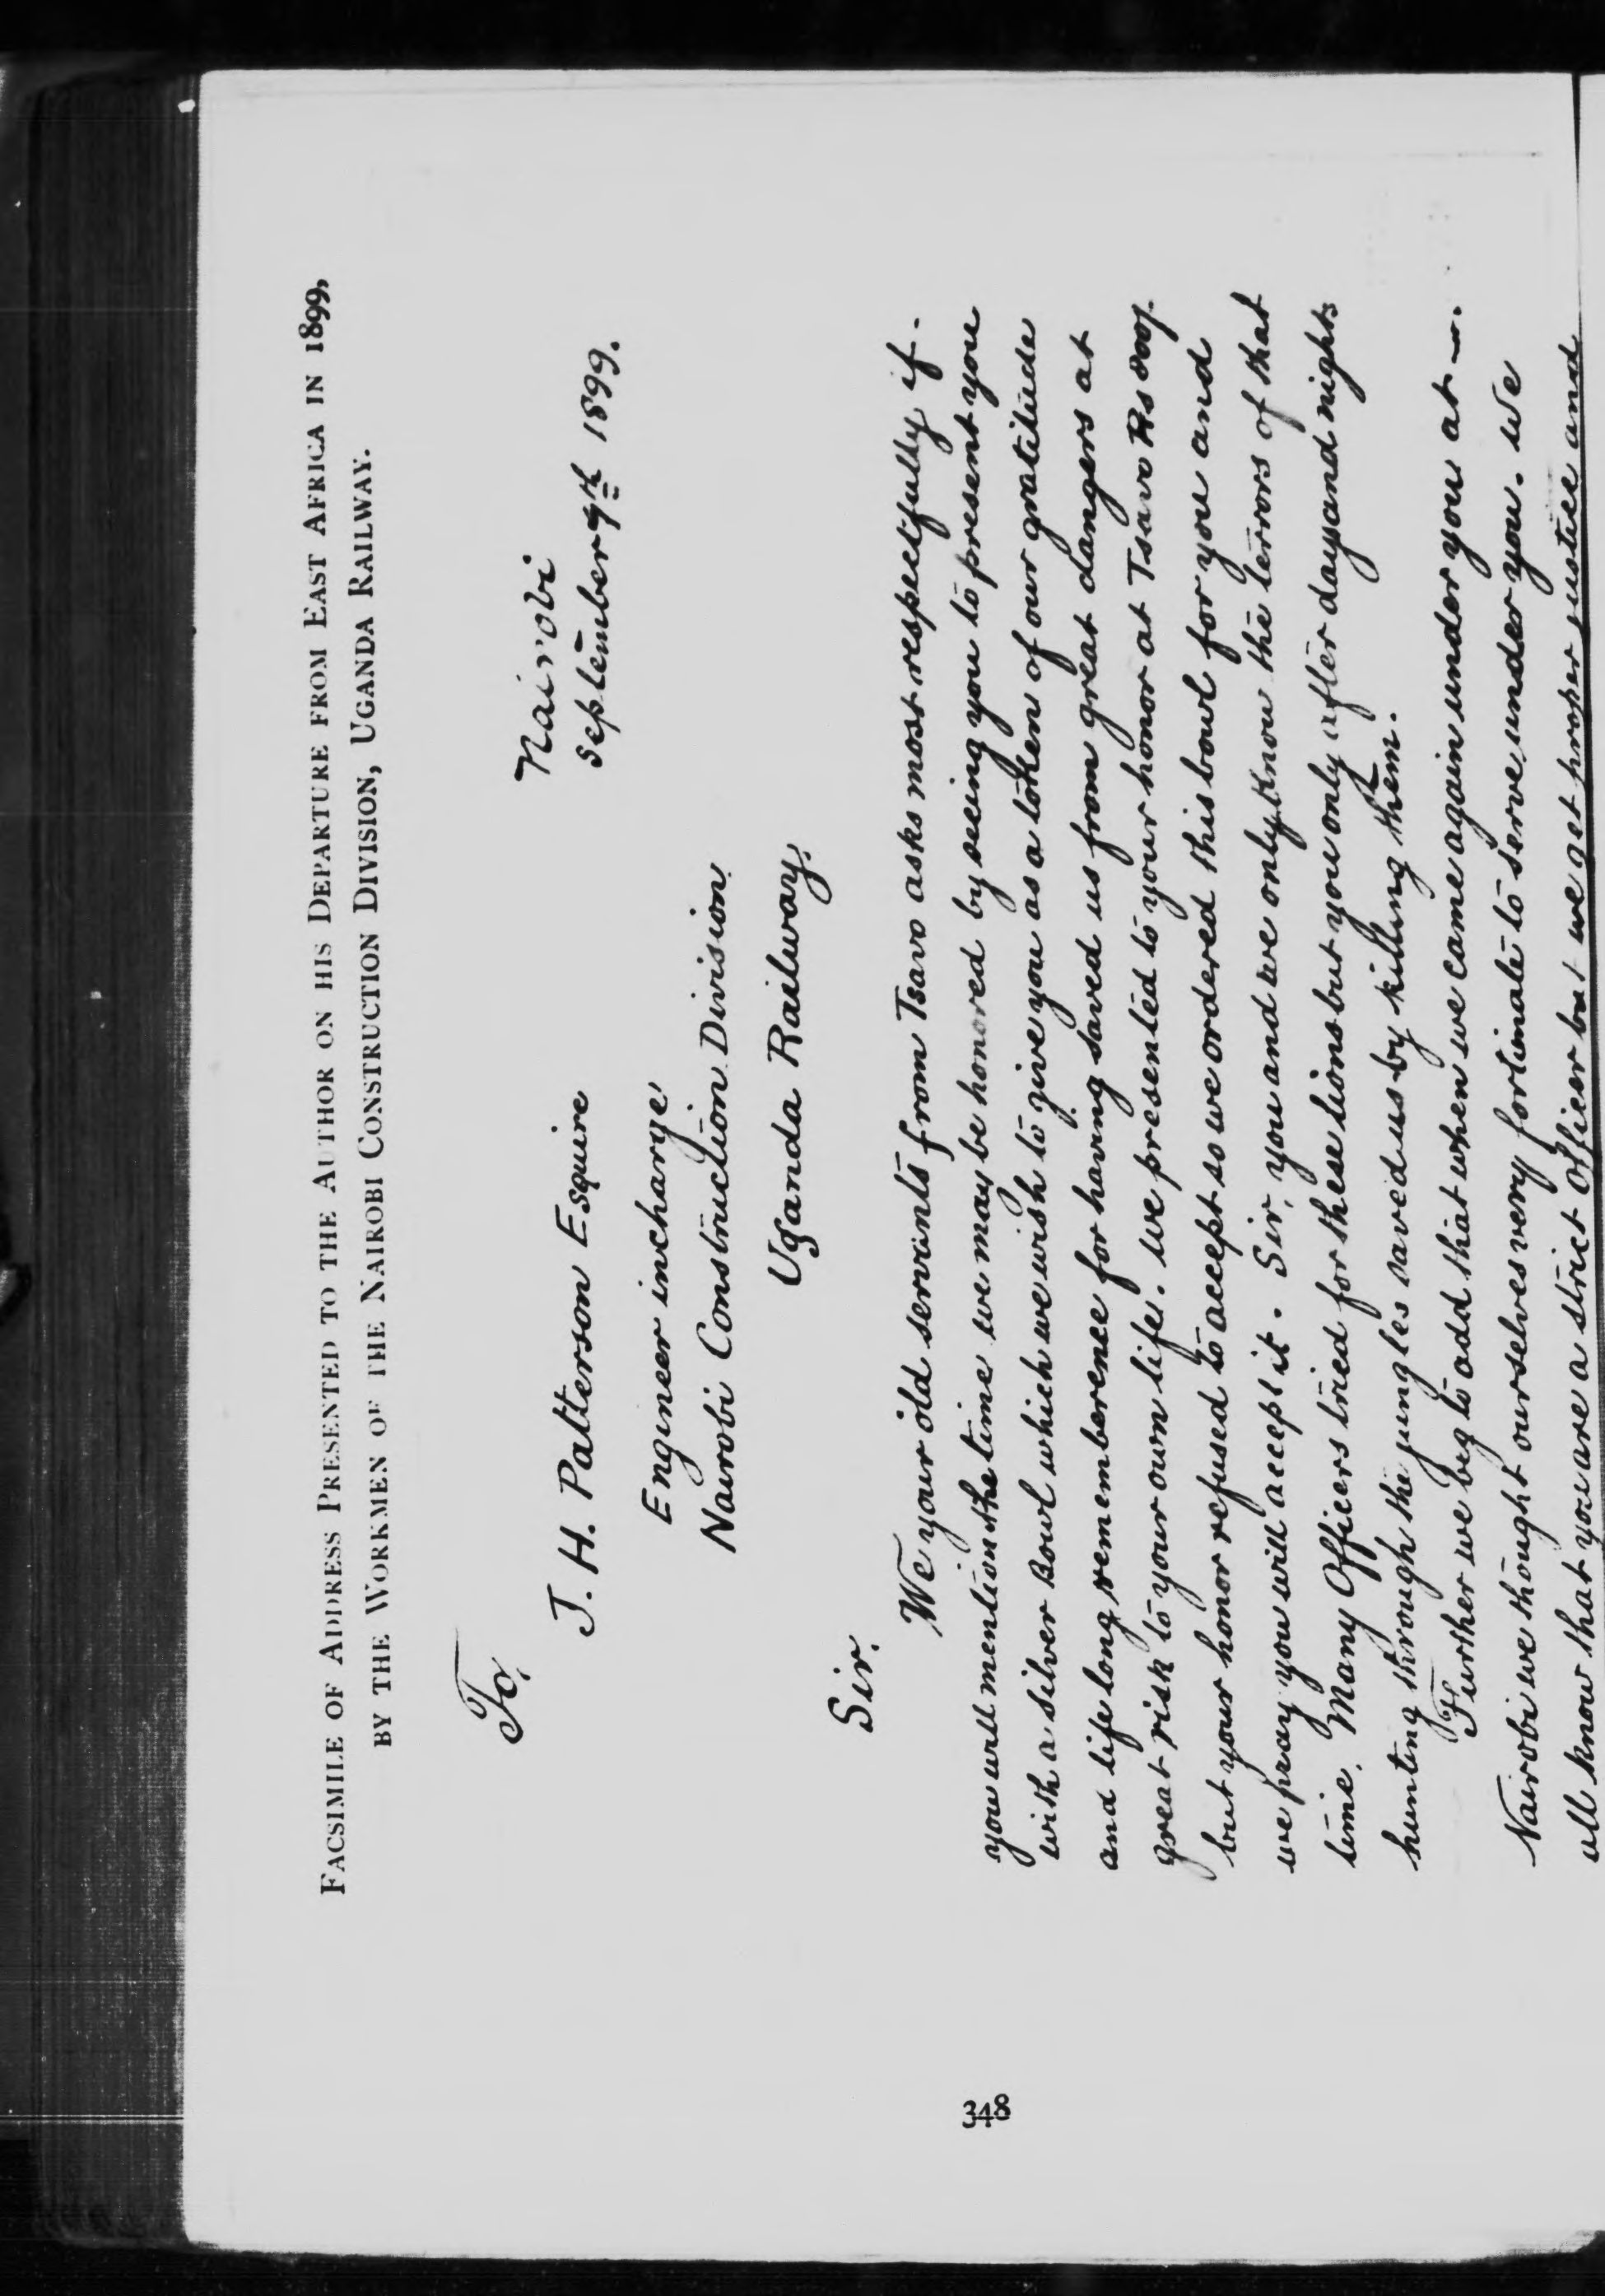 FACSIMILE OF ADDRESS PRESENTED TO THE AUTHOR ON HIS DEPARTURE FROM EAST AFRICA IN 1899,
BY THE WORKMEN OF THE NAIROBI CONSTRUCTION DIVISION, UGANDA RAILWAY.
Nairobi
September 9th 1899.
To,
J. H. Patterson Esquire
Engineer incharge
Nairobi Construction Division
Uganda Railway.
Sir.
We your old servants from Tsavo asks most respectfully if
you will mention the time we may be honored by seeing you to present you
with a silver Bowl which we wish to give you as a token of our gratitude
and life long rememberence for having saved us from great dangers at
great risk to your own life. We presented to your honor at Tsavo Rs 800/-
but your honor refused to accept so we ordered this bowl for you and
we pray you will accept it. Sir, you and we only know the terrors of that
time. Many Officers tried for these lions but you only after days and nights
hunting through the jungles saved us by killing them.
Further we beg to add that when we came again under you at —.
Nairobi we thought ourselves very fortunate to serve under you. We
all know that you are a strict Officer but we get proper justice and
348